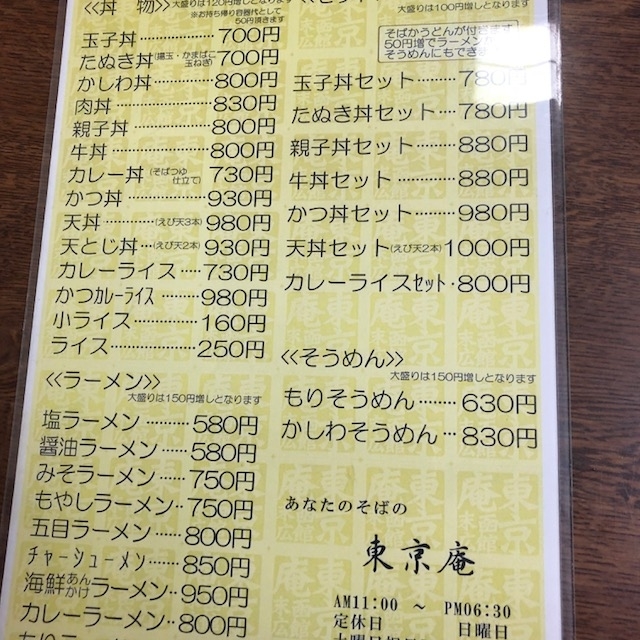 ≪丼 物≫ 大盛りは120円増しとなります
※お持ち帰り容器代として
50円頂きます
玉子丼……………700円
たぬき丼(揚玉・かまぼこ玉ねぎ)700円
かしわ丼…………800円
肉丼………………830円
親子丼……………800円
牛丼………………800円
カレー丼(そばつゆ仕立て)730円
かつ丼……………930円
天丼………(えび天3本)980円
天とじ丼…(えび天2本)930円
カレーライス……730円
かつカレーライス…………980円
小ライス…………160円
ライス……………250円
≪ラーメン≫
大盛りは150円増しとなります
塩ラーメン………580円
醤油ラーメン……580円
みそラーメン……750円
もやしラーメン‥750円
五目ラーメン……800円
チャーシューメン………850円
海鮮あんかけラーメン‥950円
カレーラーメン‥800円
大盛りは100円増しとなります
そばかうどんが付きます
50円増でラーメン
そうめんにもでき
玉子丼セット………780円
たぬき丼セット……780円
親子丼セット………880円
牛丼セット…………880円
かつ丼セット………980円
天丼セット(えび天2本)1000円
カレーライスセット・800円
≪そうめん≫
大盛りは150円増しとなります
もりそうめん………630円
かしわそうめん…830円
あなたのそばの
東京庵
AM11:00 ～ PM06:30
定休日 日曜日